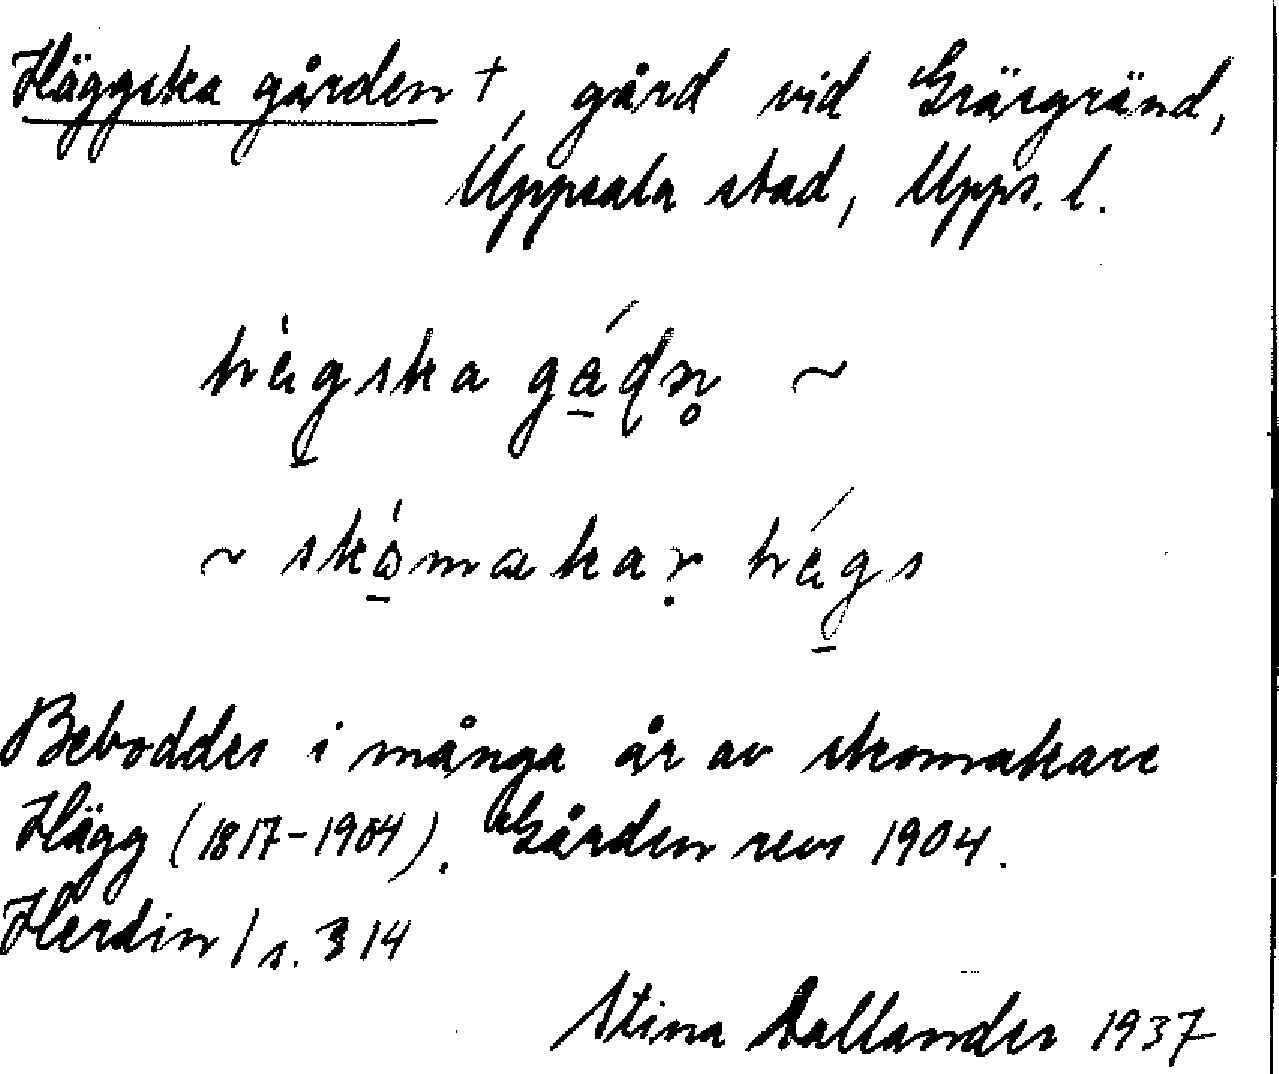 Häggska gården +, gård vid Gräsgränd,
Uppsala stad, Upps. l.
hä̀gska gá̱ḍn̥ ~
~ skò̱makaṛ hä́gs
Beboddes i många år av skomakare
Hägg (1817-1904). Gården revs 1904.
Herdin / s. 314
Stina 1937